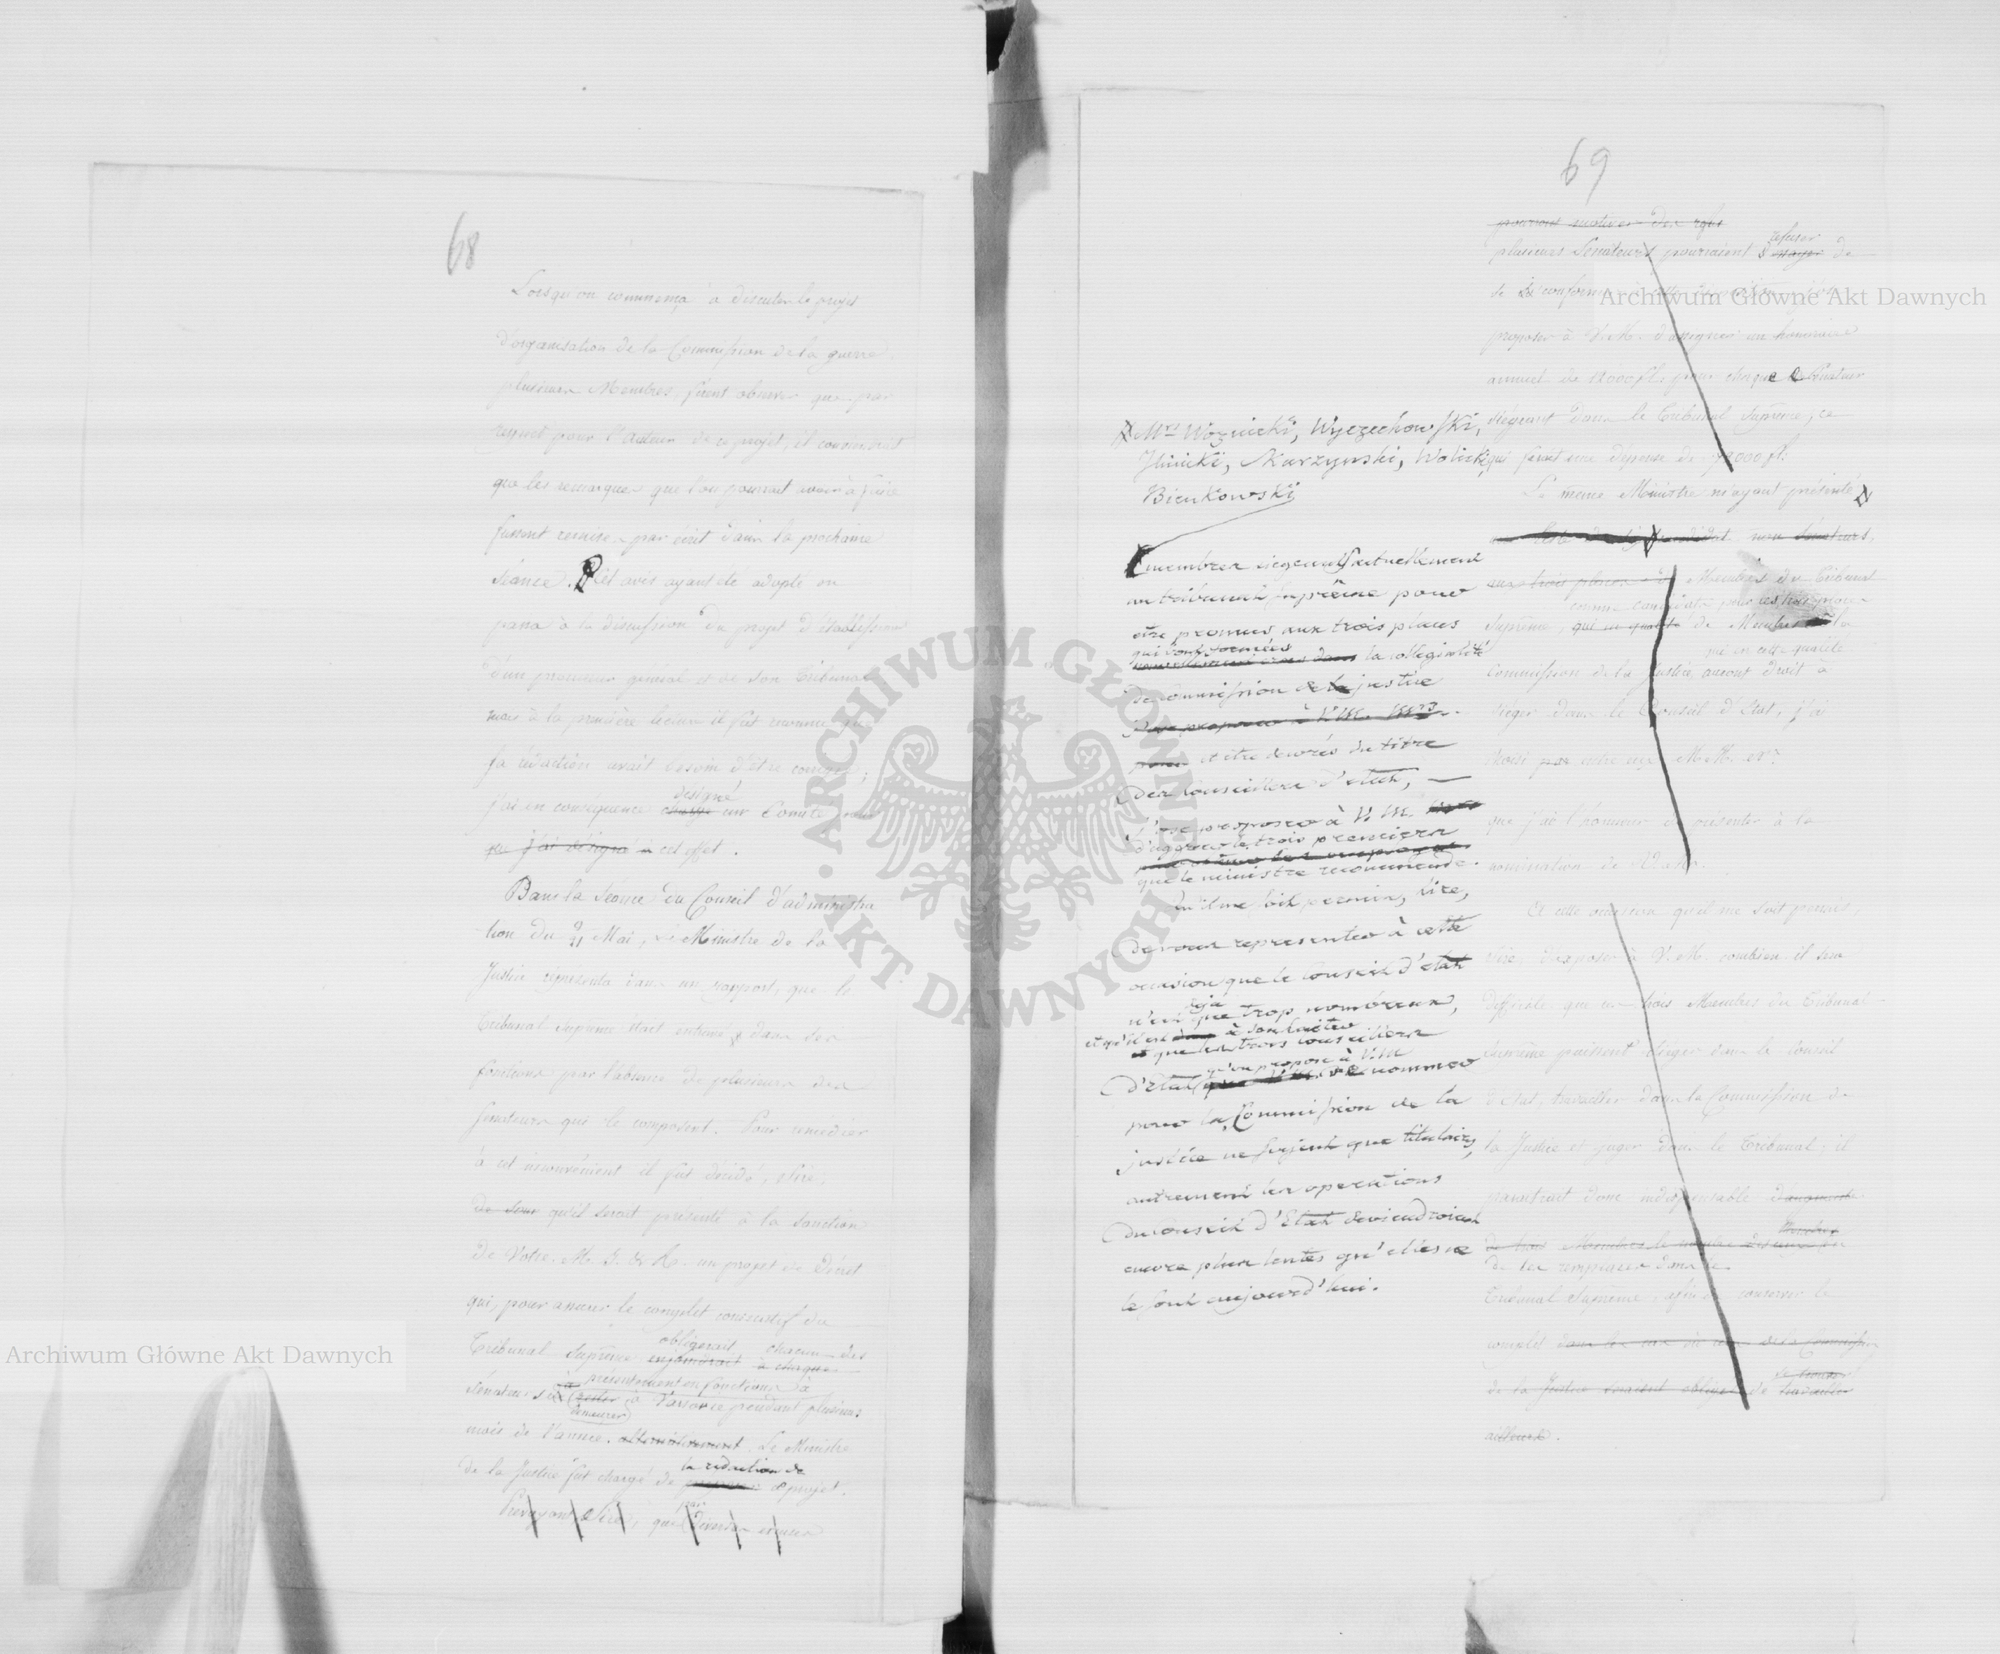 68
Lorsqu'on commença à discuter le projet
d'organisation de la Commission de la guerre
plusieurs Membres, firent observer que par
respect pour l'Auteur de ce projet, il conviendrait
que les remarques que l'on pourrait avoir à faire
fussent remises par écrit dans la prochaine
séance. Cet avis ayant été adopté on
passa à la discussion du projet d'établissement
d'un procureur général et de son Tribunal
mais à la première lecture il fut reconnu que
sa rédaction avait besoin d'être corrigée;
designé
j'ai en conséquence chargé un Comité
que j'ai désigné à cet effet.
Dans la Séance du Conseil d'administra
tion du 9/21 Mai, le Ministre de la
Justice représenta dans un rapport, que le
Tribunal Suprême était entravé dans ses
fonctions par l'absence de plusieurs des
Senateurs qui le composent. Pour remédier
à cet inconvénient il fut décidé, Sire,
qu'il serait présenté à la sanction
de Votre M. I. & R. un projet de Décret
qui, pour assurer le complet consécutif du
obligerait chacun des
Tribunal Suprême enjoindrait à chaque
présentement en fonctions à
Sénateur rester à Varsovie pendant plusieurs
demeurer
mois de l'année. alternativement. Le Ministre
la rédaction de
de la Justice fut chargé de ce projet.
par
Prevoyant Sire, que diverses
69
pourrait motiver des
refuser
plusieurs Senateurs pourraient de
se conformer à cette
proposer à V. M. d'assigner un honoraire
annuel de 12000 fl. pour chaque Senateur
siégeant dans le Tribunal Suprême, ce
qui ferait une dépense de 72000 fl.
Le même Ministre m'ayant présenté
non Sénateurs,
aux trois places de Membres du Tribunal
comme candidats pour les trois places
Suprême, qui en qualité de Membres de la
qui en cette qualité
Commission de la Justice, auront droit à
siéger dans le Conseil d'Etat, j'ai
choisi par entre eux M. M.
que j'ai l'honneur de présenter à la
nomination de V. M.
A cette occasion qu'il me soit permis,
Sire, d'exposer à V. M. combien il sera
difficile que les trois Membres du Tribunal
Suprême puissent siéger dans le Conseil
d'Etat, travailler dans la Commission de
la Justice et juger dans le Tribunal, il
paraitrait donc indispensable d'augmenter
Membres
de trois Membres le nombre
de les remplacer dans le
Tribunal Suprême, afin de conserver le
complet dans les cas où ceux de la Commission
de la Justice seraient obligés de travailler
ailleurs.
Mrs Woznicki, Wyczechowski,
Ilinicki, Karzynski, Wolicki,
Bienkowski
membres siegeants actuellement
au tribunal suprême pour
être promus aux trois places
qui sont vacantes
dans la collegialité
de commission de la justice
J'ose proposer à V. M. Mrs
pour et être décorés du titre
des conseillers d'etat, —
J'ose proposer à V. M.
d'agréer les trois premiers
que le ministre recommande.
Qu'il me soit permis, Sire,
de vous representer à cette
occasion que le Conseil d'etat
déjà
n'est que trop nombreux,
et qu'il est à souhaiter
et que les trois conseillers
qu'on propose à V. M.
d'Etat que V. M. nommer
pour la Commission de la
justice ne soyent que titulaires,
autrement les operations
du conseil d'Etat deviendroient
encore plus lentes qu'elles ne
le sont aujourd'hui.
Archiwum Główne Akt Dawnych
Archiwum Główne Akt Dawnych
ARCHIWUM GŁÓWNE AKT DAWNYCH